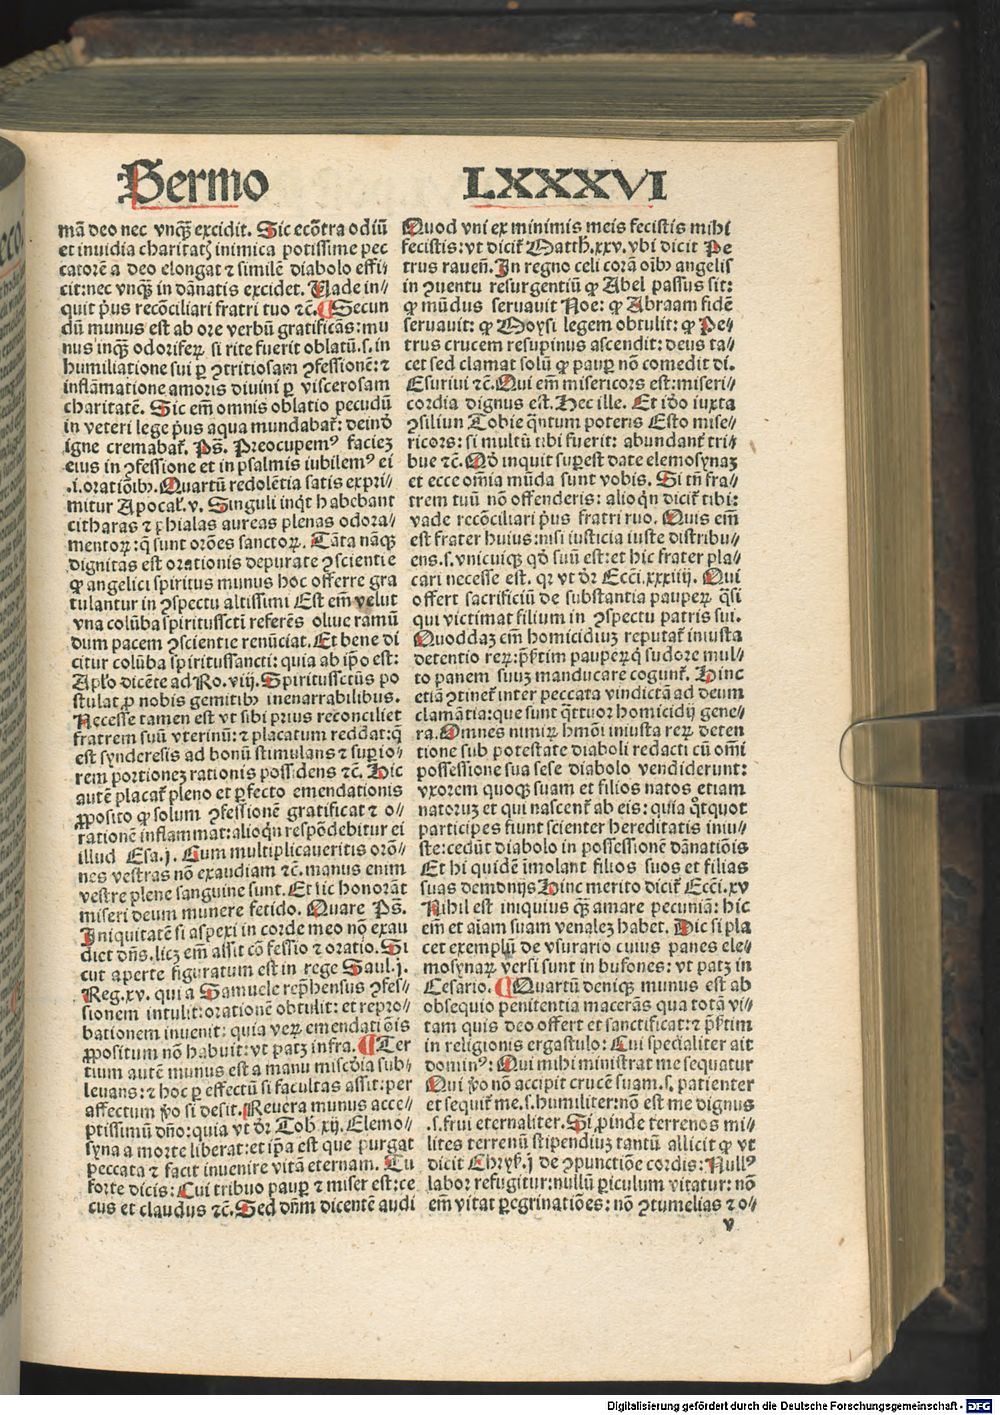 Sermo LXXXVI
mā deo nec vnqȝ excidit. Sic ecōtra odiū
et inuidia charitatꝫ inimica potissime pec
catorē a deo elongat ⁊ similē diabolo effi⸗
cit: nec vnqȝ in dānatis excidet. Uade in⸗
quit pꝰus recōciliari fratri tuo ⁊cꝭ. ¶ Secun
dū munus est ab ore verbū gratificās: mu
nus inqȝ odoriferꝝ si rite fuerit oblatū .s. in
humiliatione sui ꝑ ꝯtritiosam ꝯfessionē: ⁊
inflāmatione amoris diuini ꝑ viscerosam
charitatē. Sic em̄ omnis oblatio pecudū
in veteri lege pꝰus aqua mundabat᷑: deinđ
igne cremabat᷑. Ps̄. Preocupemꝰ faciez
eius in ꝯfessione et in psalmis iubilemꝰ ei
.i. oratiōibꝰ. Quartū redolētia satis expri⸗
mitur Apocal̕. v. Singuli inqt̕ habebant
citharas ⁊ phialas aureas plenas odora⸗
mentoꝝ: q̄ sunt orōes sanctoꝝ. Tāta nāqȝ
dignitas est orationis depurate ꝯscientie
ꝙ angelici spiritus munus hoc offerre gra
tulantur in ꝯspectu altissimi Est em̄ velut
vna colūba spiritussctī referēs oliue ramū
dum pacem ꝯscientie renūciat. Et bene di
citur colūba spiritussancti: quia ab ip̄o est:
Apl̕o dicēte ad Ro. viij. Spiritussctūs po
stulat ꝓ nobis gemitibꝰ inenarrabilibus.
Necesse tamen est vt sibi prius reconciliet
fratrem suū vterinū: ⁊ placatum reddat: q̄
est synderesis ad bonū stimulans ⁊ suꝑio⸗
rem portionez rationis possidens ⁊cꝭ. Hic
autē placat᷑ pleno et ꝑfecto emendationis
ꝓposito ꝙ solum ꝯfessionē gratificat ⁊ o⸗
rationē inflammat: alioqn̄ respōdebitur ei
illud Esa. j. Cum multiplicaueritis orō⸗
nes vestras nō exaudiam ⁊cꝭ. manus enim
vestre plene sanguine sunt. Et sic honorāt
miseri deum munere fetido. Quare Ps̄.
Iniquitatē si aspexi in corde meo nō exau
diet dn̄s. licꝫ em̄ assit cōfessio ⁊ oratio. Si
cut aperte figuratum est in rege Saul. j.
Reg. xv. qui a Samuele rep̄hensus ꝯfes⸗
sionem intulit: orationē obtulit: et repro⸗
bationem inuenit: quia veꝝ emendatiōis
ꝓpositum nō habuit: vt patꝫ infra. ¶ Ter
tium autē munus est a manu misc̄dia sub⸗
leuans: ⁊ hoc ꝑ effectū si facultas assit: per
affectum v̄o si desit. Reuera munus acce⸗
ptissimū dn̄o: quia vt dr̄ Tob. xij. Elemo⸗
syna a morte liberat: et ip̄a est que purgat
peccata ⁊ facit inuenire vitā eternam. Tu
forte dicis: Cui tribuo pauꝑ ⁊ miser est: ce
cus et claudus ⁊cꝭ. Sed dn̄m dicentē audi
Quod vni ex minimis meis fecistis mihi
fecistis: vt dicit᷑ Matth̕. xxv. vbi dicit Pe
trus rauen̄. In regno celi corā oībꝰ angelis
in ꝯuentu resurgentiū ꝙ Abel passus sit:
ꝙ mūdus seruauit Noe: ꝙ Abraam fidē
seruauit: ꝙ Moysi legem obtulit: ꝙ Pe⸗
trus crucem resupinus ascendit: deus ta⸗
cet sed clamat solū ꝙ pauꝑ nō comedit di.
Esuriui ⁊cꝭ. Qui em̄ misericors est: miseri⸗
cordia dignus est. Hec ille. Et iđo iuxta
ꝯsiliun Tobie q̄ntum poteris Esto mise⸗
ricors: si multū tibi fuerit: abundant᷑ tri⸗
bue ⁊cꝭ. Qđ inquit suꝑest date elemosynaȝ
et ecce om̄ia mūda sunt vobis. Si tn̄ fra⸗
trem tuū nō offenderis: alioqn̄ dicit᷑ tibi:
vade recōciliari pꝰus fratri tuo. Quis em̄
est frater huius: nisi iusticia iuste distribu⸗
ens .s. vnicuiqȝ qđ suū est: et hic frater pla⸗
cari necesse est. qꝛ vt dr̄ Ecci. xxxiiij. Qui
offert sacrificiū de substantia pauperꝝ q̄si
qui victimat filium in ꝯspectu patris sui.
Quoddaȝ em̄ homicidiuȝ reputat᷑ iniusta
detentio reꝝ: p̄ẜtim pauperꝝ q̄ sudore mul⸗
to panem suuȝ manducare cogunt᷑. Hinc
etiā ꝯtinet᷑ inter peccata vindictā ad deum
clamātia: que sunt q̄ttuor homicidij gene⸗
ra. Omnes nimiꝝ hmōi iniusta reꝝ deten
tione sub potestate diaboli redacti cū om̄i
possessione sua sese diabolo vendiderunt:
vxorem quoqȝ suam et filios natos etiam
natoruȝ et qui nascent᷑ ab eis: quia qt̕quot
participes fiunt scienter hereditatis iniu⸗
ste: cedūt diabolo in possessionē dānatiōis
Et hi quidē īmolant filios suos et filias
suas demonijs Hinc merito dicit᷑ Ecci. xv
Nihil est iniquius qȝ amare pecuniā: hic
em̄ et aīam suam venaleȝ habet. Hic si pla
cet exemplū de vsurario cuius panes ele⸗
mosynaꝝ versi sunt in bufones: vt patꝫ in
Cesario. ¶ Quartū deniqȝ munus est ab
obsequio penitentia macerās qua totā vi⸗
tam quis deo offert et sanctificat: ⁊ p̄ẜtim
in religionis ergastulo: Cui specialiter ait
dominꝰ: Qui mihi ministrat me sequatur
Qui v̄o nō accipit crucē suam .s. patienter
et sequit᷑ me .s. humiliter: nō est me dignus
.s. frui eternaliter. Si ꝓinde terrenos mi⸗
lites terrenū stipendiuȝ tantū allicit ꝙ vt
dicit Chryẜ. j de ꝯpunctiōe cordis: Nullꝰ
labor refugitur: nullū ꝑiculum vitatur: nō
em̄ vitat ꝑegrinatiōes: nō ꝯtumelias ⁊ o⸗
v
Digitalisierung gefördert durch die Deutsche Forschungsgemeinschaft - DFG